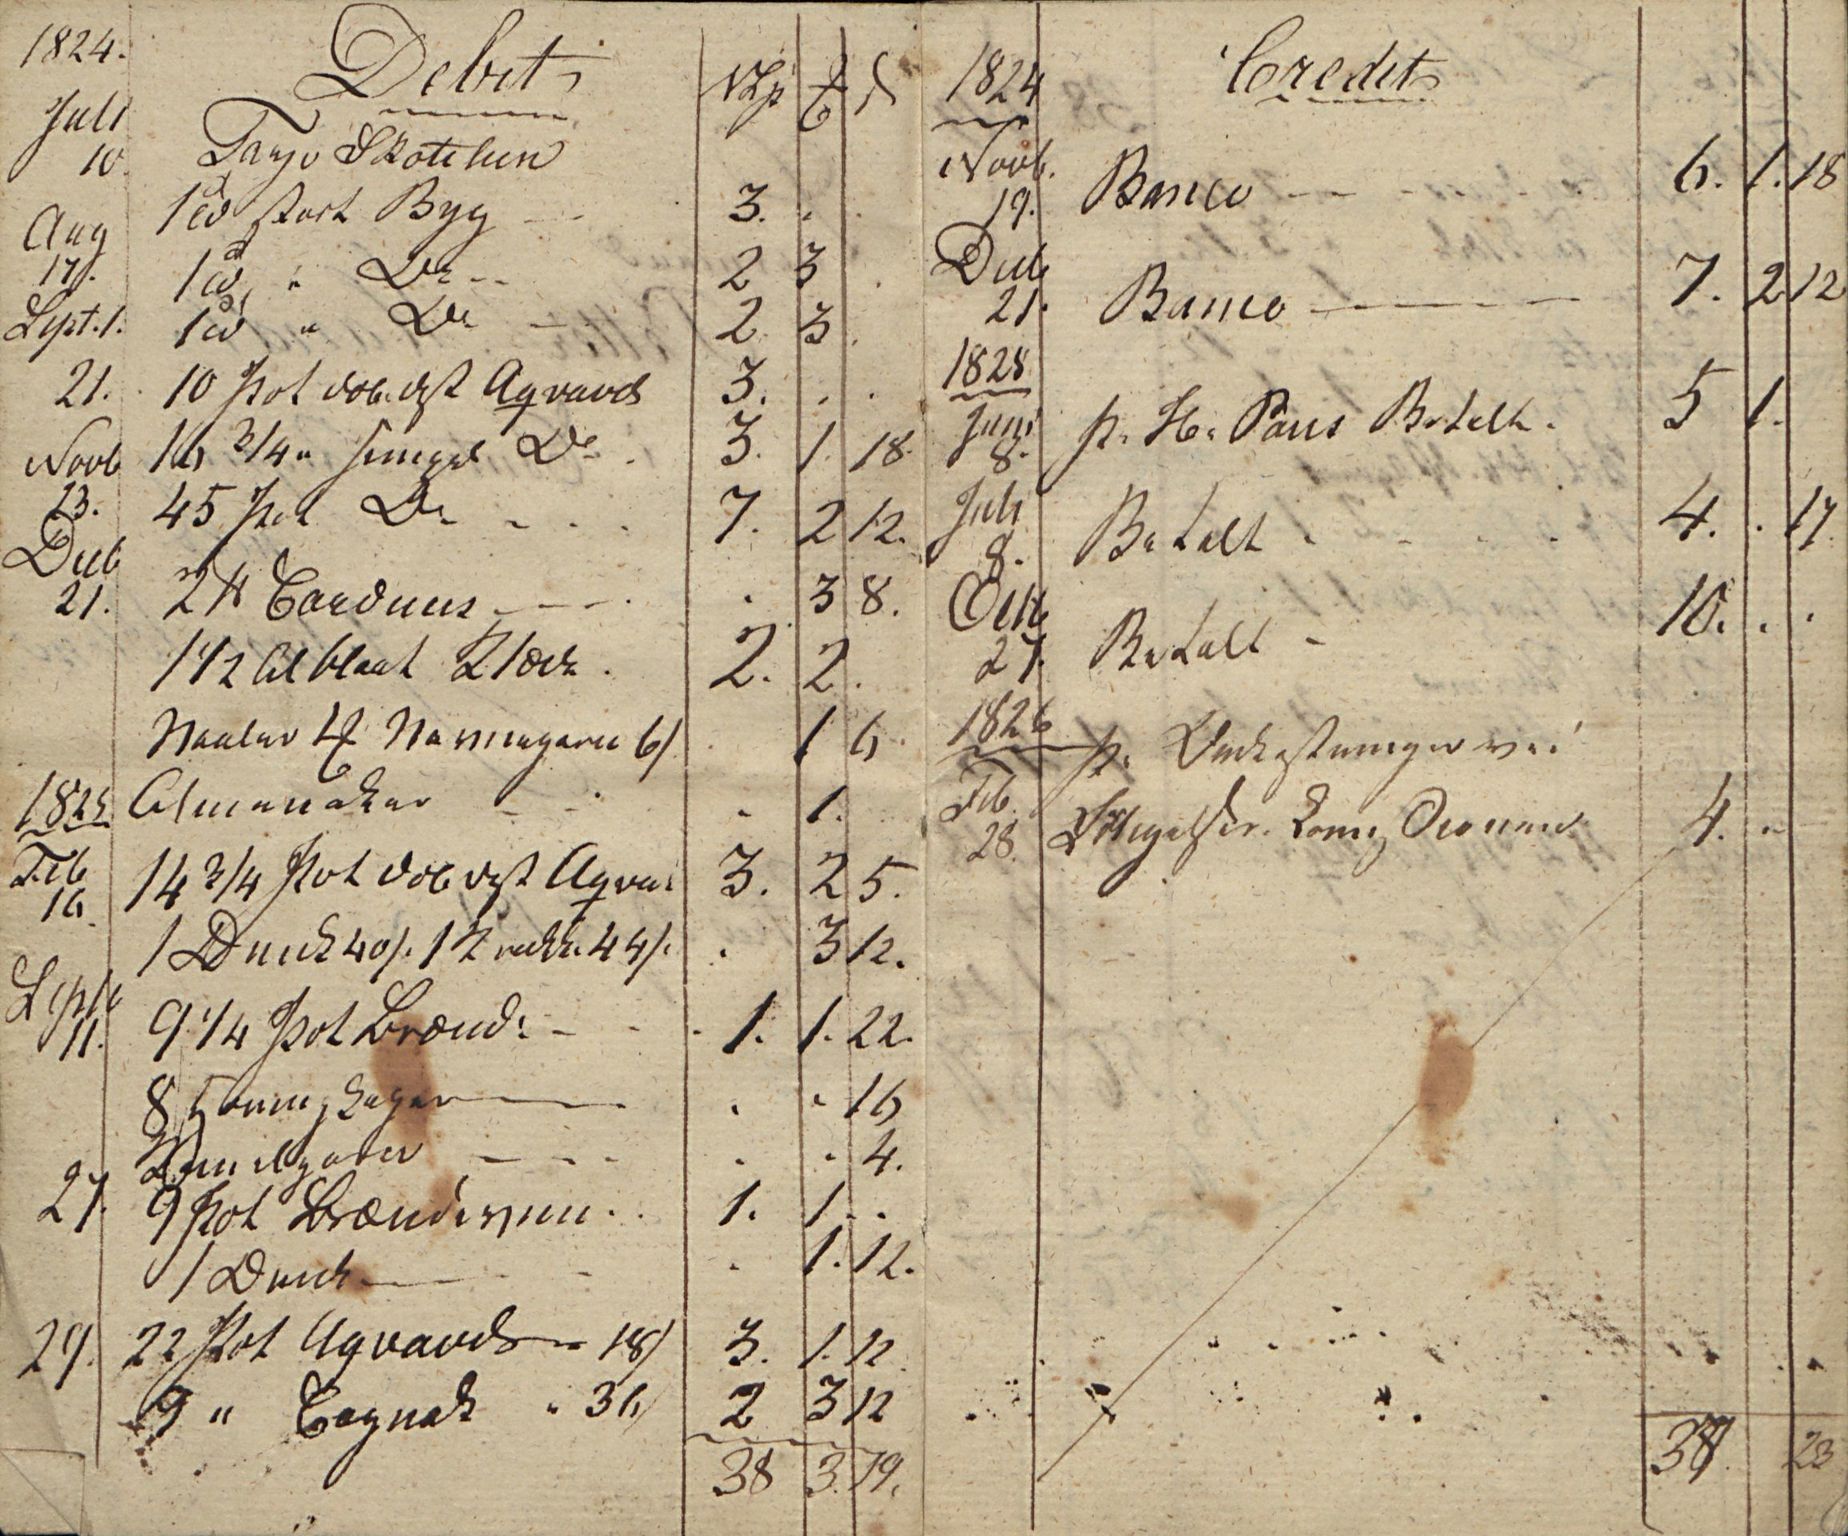 1824.
Debet
Sp ß
Juli
10. Targe Skotelven
1 Td sort Byg 3. . .
Aug
17. 1 Td " Do 2 3 .
Sept. 1. 1 Td " Do 2 3 .
21. 10 Pot dob. dest Aqvavit 3. . .
16 3/4 " simpel Do 3. 1. 18.
Novb
23. 45 Pot Do 7. 2 12.
Decb
21. 2 ℔ Carduus . 3 8.
1 1/2 Al blaat Klæde 2. 2 .
Naaler 4ß 6/ . 1 6
1825 Almanakker . 1.
Feb
16. 14 3/4 Pot dob dest Aqva: 3. 2 5.
1 Dunk 40/. 1 44/. . 3 12.
Septb
11. 9 1/4 Pot Brænd: 1. 1. 22.
8 Honningkager . . 16
. . 4.
27. 9 Pot Brændeviin 1. 1. .
1 Dunk . 1. 12.
29. 22 Pot Aqvavit 18/ 3. 1. 12
9 " Cognak " 36/ 2 3 12
38 3. 19.
1824
Credit
Novb.
19. Banco 6. 1. 18
Decb
21. Banco 7. 2 12
1825
Juni
8. p. Hr. Paus Betalt. 5 1.
Juli
8. Betalt 4. . 17.
Octb
27. Betalt 10. . .
1826
Feb.
28. 4. "
37 23